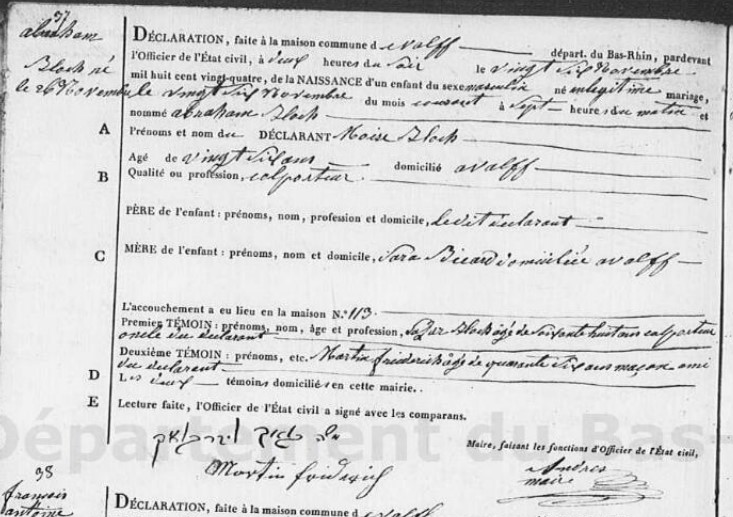 37
abraham
Bloch né
le 26 Novembre
DÉCLARATION, faite à la maison commune d e Valff départ. du Bas-Rhin, pardevant
l'Officier de l'État civil, à deux heures du soir le vingt Six Novembre
mil huit cent vingt-quatre, de la NAISSANCE d'un enfant du sexe masculin né en legitime mariage,
le vingt Six Novembre du mois courant à Sept heures du matin et
nommé abraham Bloch
A Prénoms et nom du DÉCLARANT Moise Bloch
Agé de vingt Six ans domicilié a valff
B Qualité ou profession, colporteur
PÈRE de l'enfant : prénoms, nom, profession et domicile, Le dit declarant
C MÈRE de l'enfant : prénoms, nom et domicile, Sara Bicard domiciliée a valff
L'accouchement a eu lieu en la maison N.° 113.
Premier TÉMOIN : prénoms, nom, âge et profession, Bloch âgé de Soixante huit ans colporteur
oncle du declarant
Deuxième TÉMOIN : prénoms, etc. Martin friderich âgé de quarante Six ans maçon ami
du declarant
D Les deux témoins domiciliés en cette mairie.
E Lecture faite, l'Officier de l'État civil a signé avec les comparans.
Maire, faisant les fonctions d'Officier de l'État civil,
Martin friderich
Andres
maire
Département du Bas-
38
françois
antoine
DÉCLARATION, faite à la maison commune d e Valff